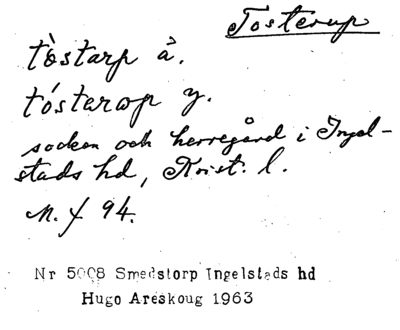 Tosterup
tòstarp ä.
tósterap y.
socken och herregård i Ingel-
stads hd, Krist. l.
M. f 94.
Nr 5008 Smedstorp Ingelstads hd
Hugo Areskoug 1963